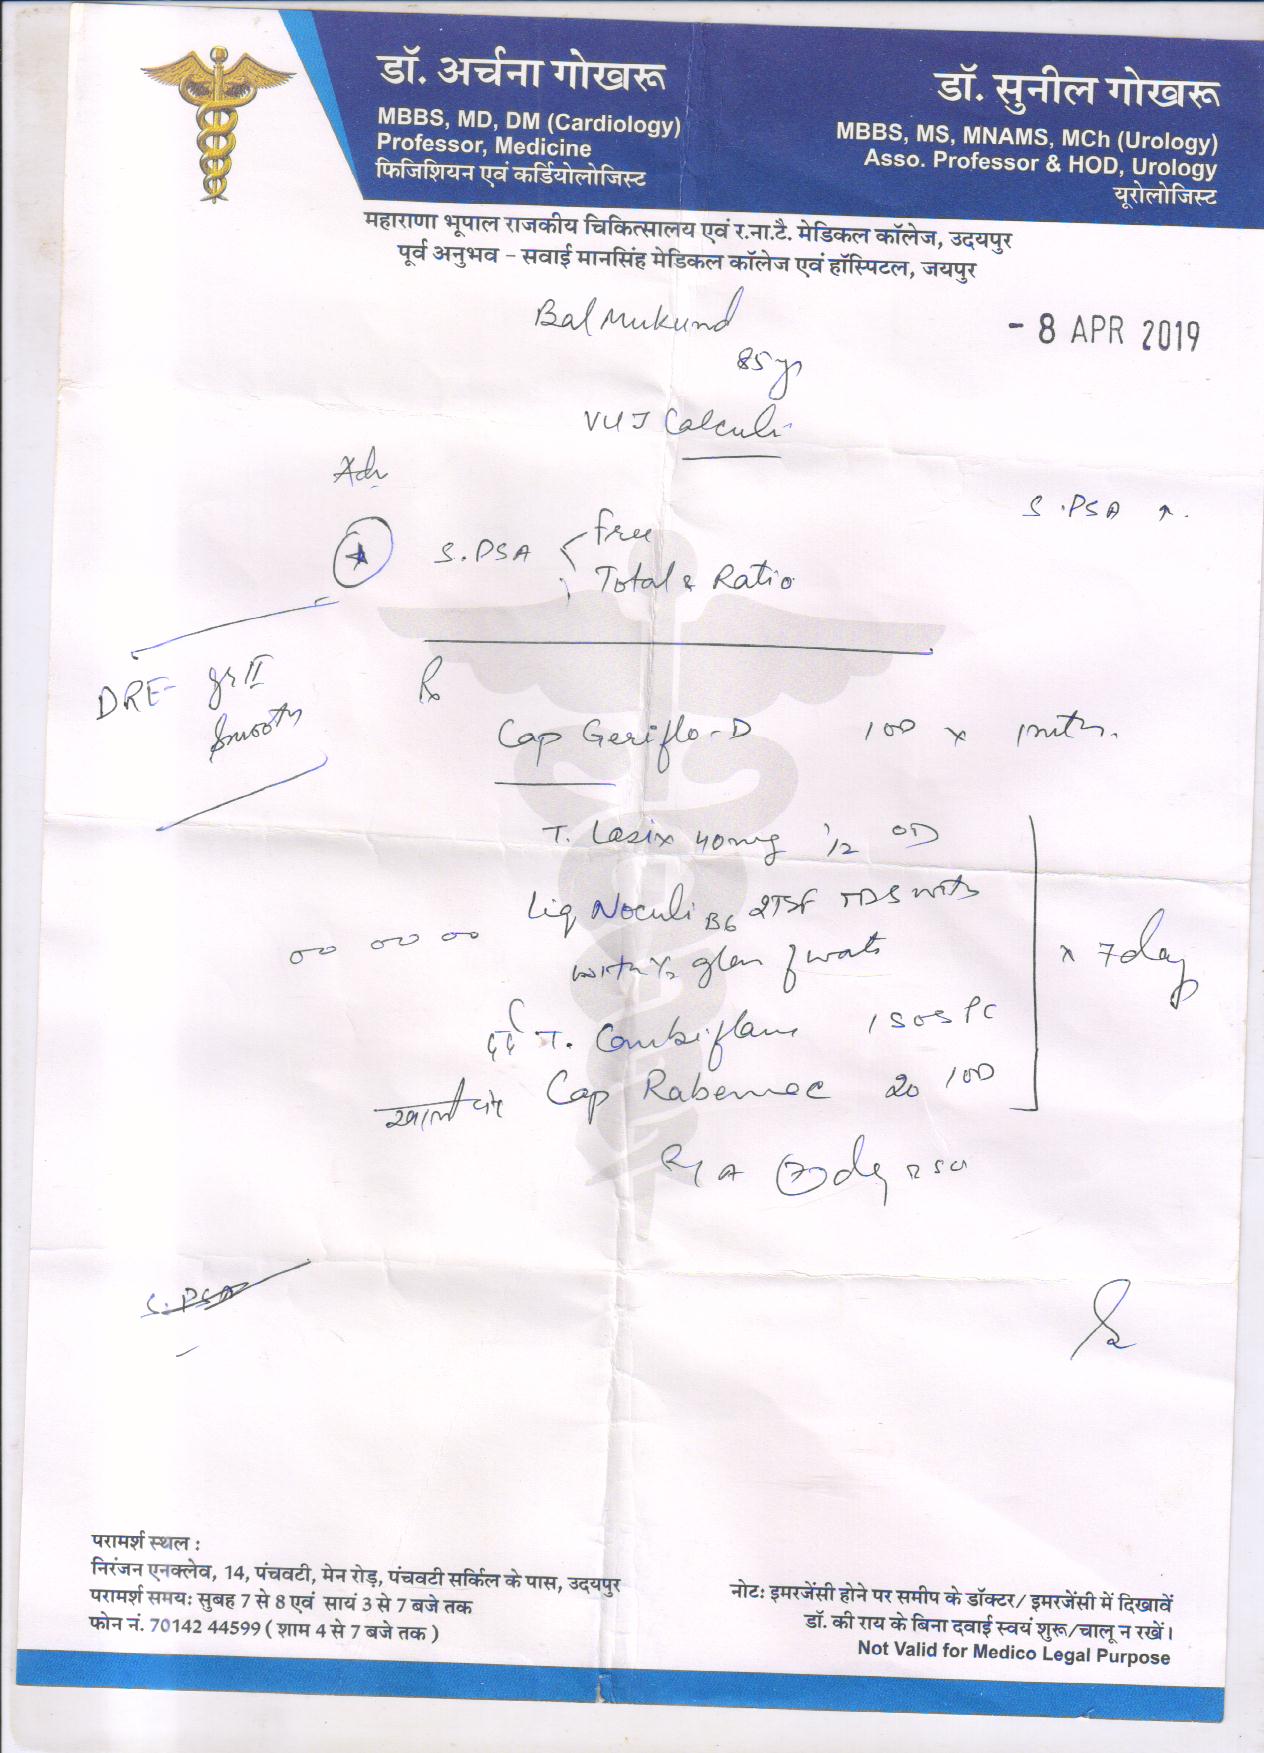 डॉ. अर्चना गोखरू
MBBS, MD, DM (Cardiology)
Professor, Medicine
फिजिशियन एवं कर्डियोलोजिस्ट
डॉ. सुनील गोखरू
MBBS, MS, MNAMS, MCh (Urology)
Asso. Professor & HOD, Urology
यूरोलोजिस्ट
महाराणा भूपाल राजकीय चिकित्सालय एवं र.ना.टै. मेडिकल कॉलेज, उदयपुर
पूर्व अनुभव - सवाई मानसिंह मेडिकल कॉलेज एवं हॉस्पिटल, जयपुर
Bal Mukund
- 8 APR 2019
85 yr
VUJ Calculi
Adv
S.PSA ↑.
S.PSA < free
Total & Ratio
DRE- gr II
Smooth
Rx
Cap Geriflo-D 1OD x 1mth.
T. Lasix 40mg 1/2 OD
Liq Noculi B6 2TSF TDS with
with 1/2 glass of water
x 7day
दर्द T. Combiflam 1 SOS PC
खाली पेट Cap Rabemac 20 1OD
R/A 7 day
S.PSA
परामर्श स्थल :
निरंजन एनक्लेव, 14, पंचवटी, मेन रोड़, पंचवटी सर्किल के पास, उदयपुर
परामर्श समयः सुबह 7 से 8 एवं सायं 3 से 7 बजे तक
फोन नं. 70142 44599 ( शाम 4 से 7 बजे तक )
नोटः इमरजेंसी होने पर समीप के डॉक्टर/ इमरजेंसी में दिखावें
डॉ. की राय के बिना दवाई स्वयं शुरू/चालू न रखें।
Not Valid for Medico Legal Purpose